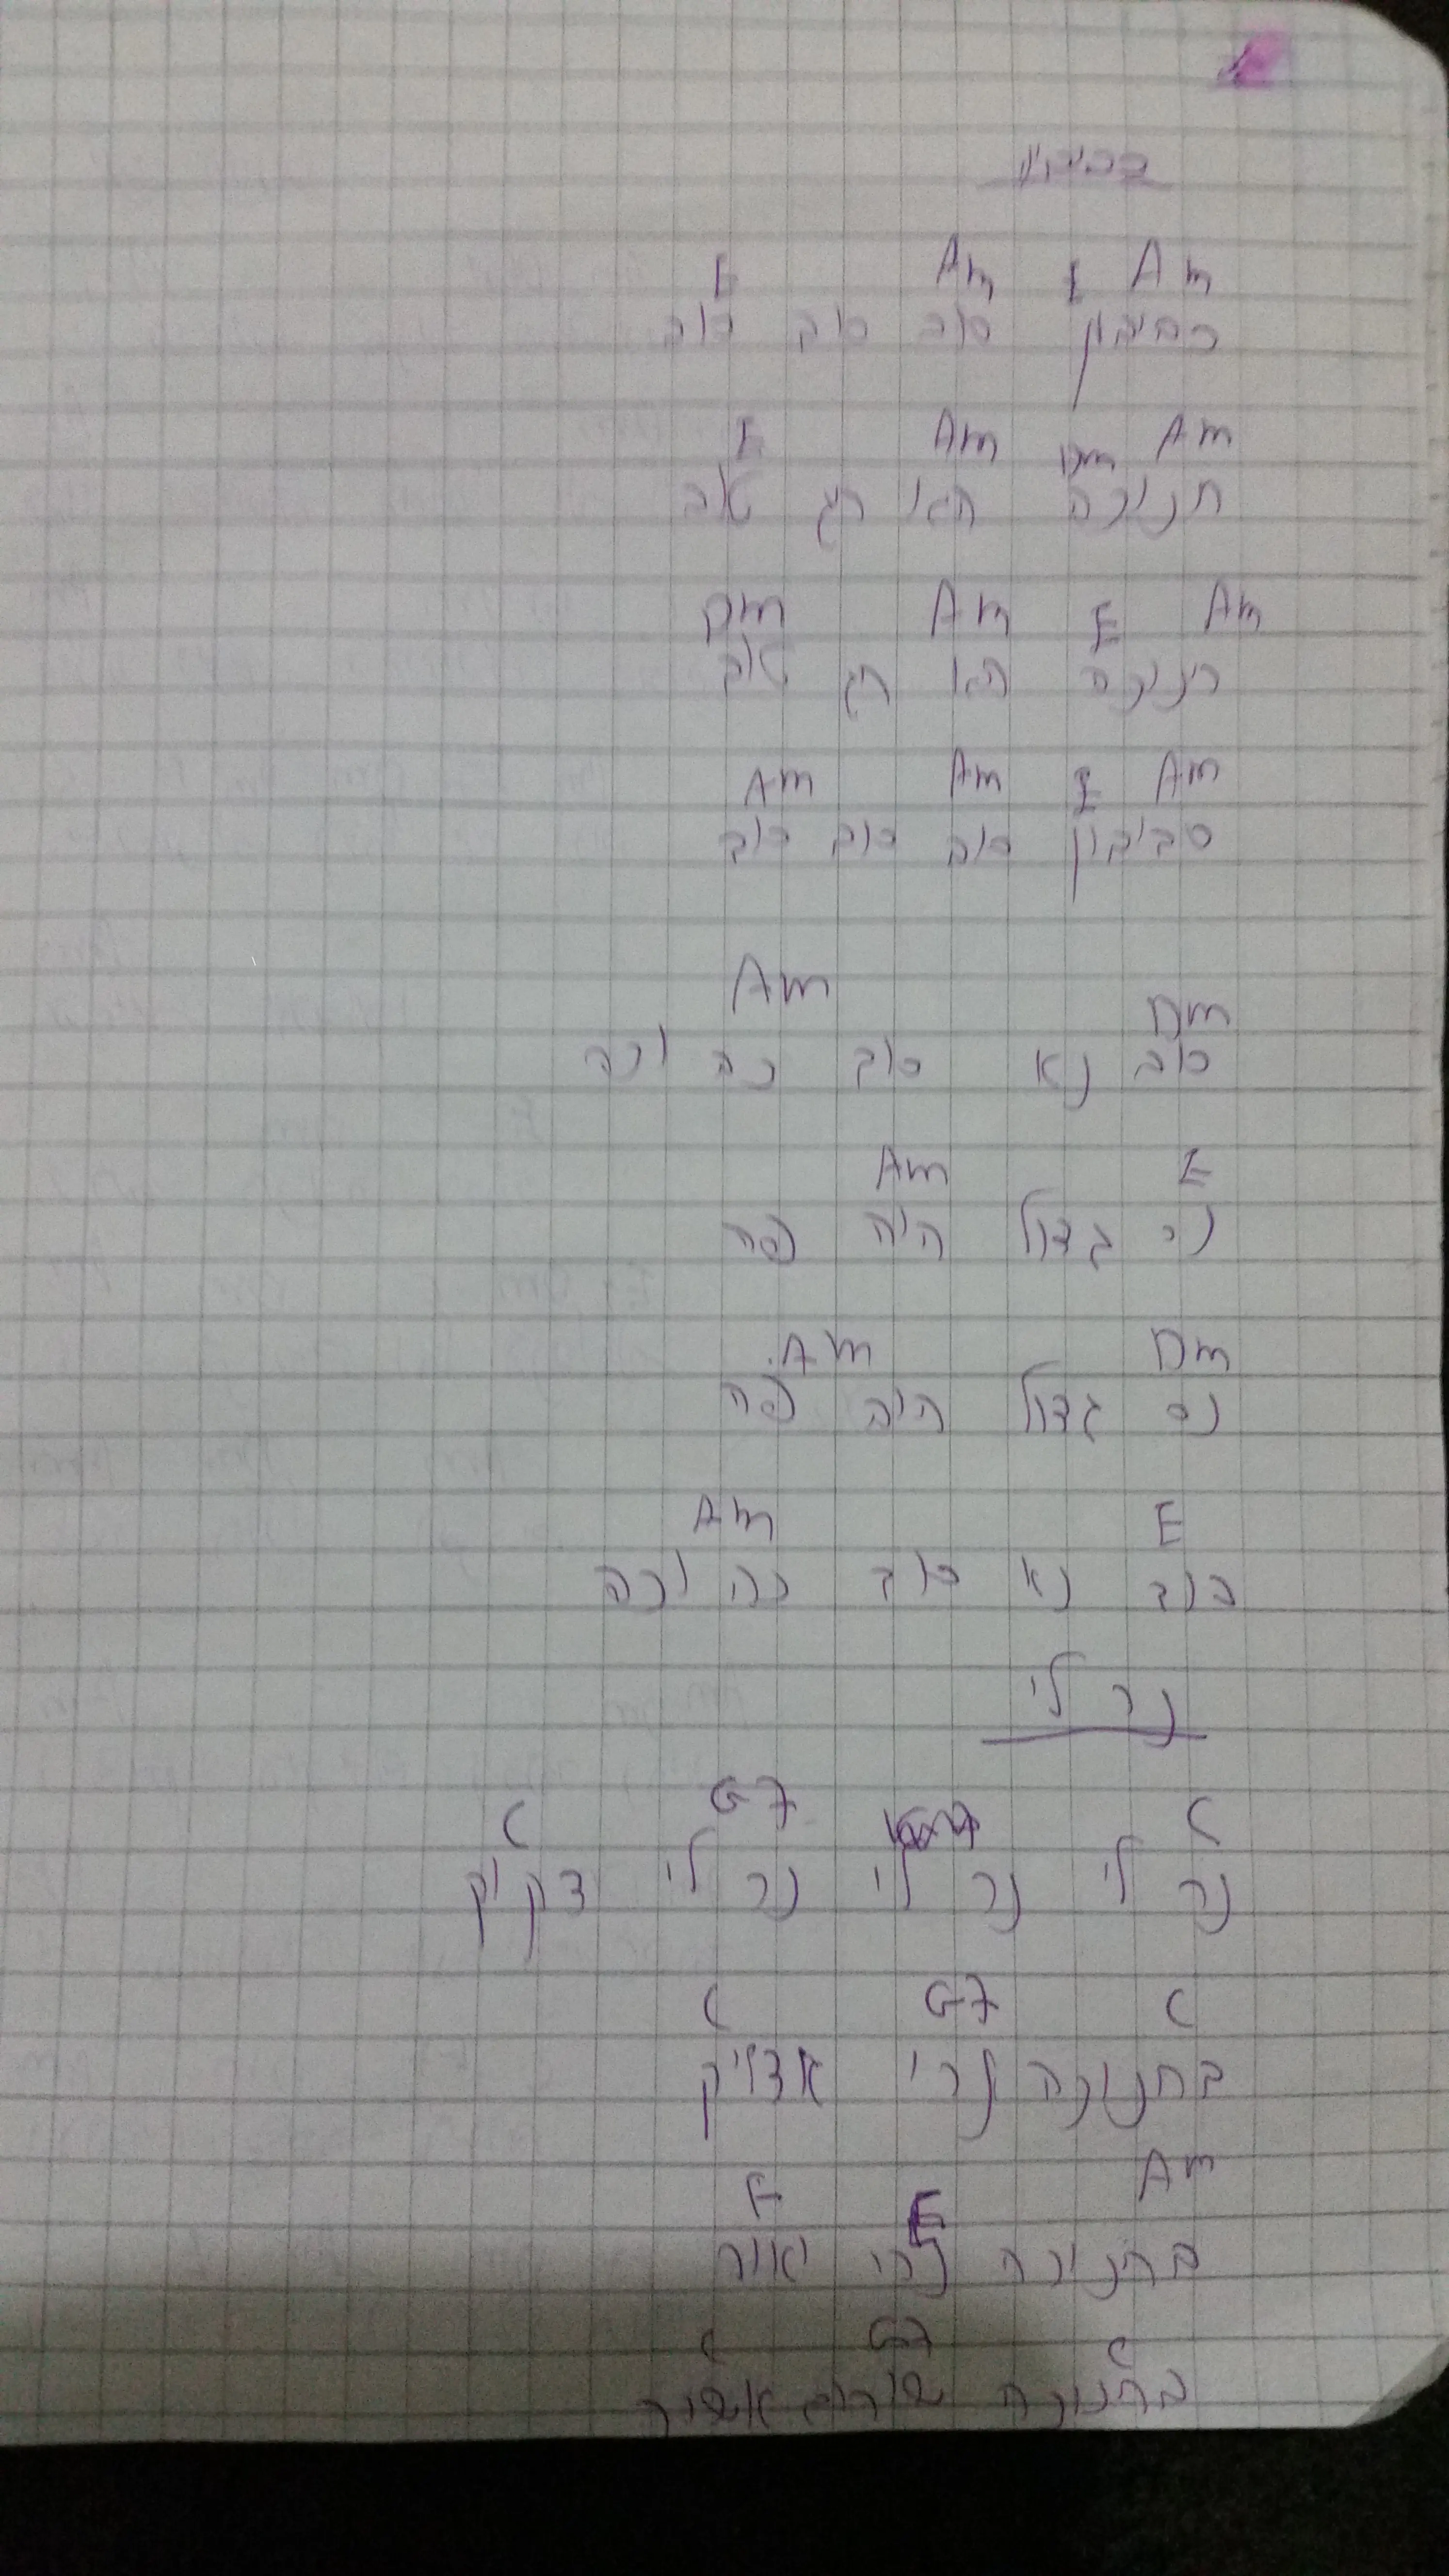 סביבון
E Am E Am
סביבון סוב סוב סוב
E Am Dm Am
חנוכה הוא חג טוב
Dm Am E Am
חנוכה הוא חג טוב
Am Am E Am
סביבון סוב סוב סוב
Am Dm
סוב נא סוב כה וכה
Am E
נס גדול היה פה
Am Dm
נס גדול היה פה
Am E
סוב נא סוב כה וכה
נר לי
C G7 C
נר לי נר לי נר לי דקיק
C G7 C
בחנוכה נרי אדליק
F E Am
בחנוכה נרי יאיר
C G7 C
בחנוכה שירים אשיר